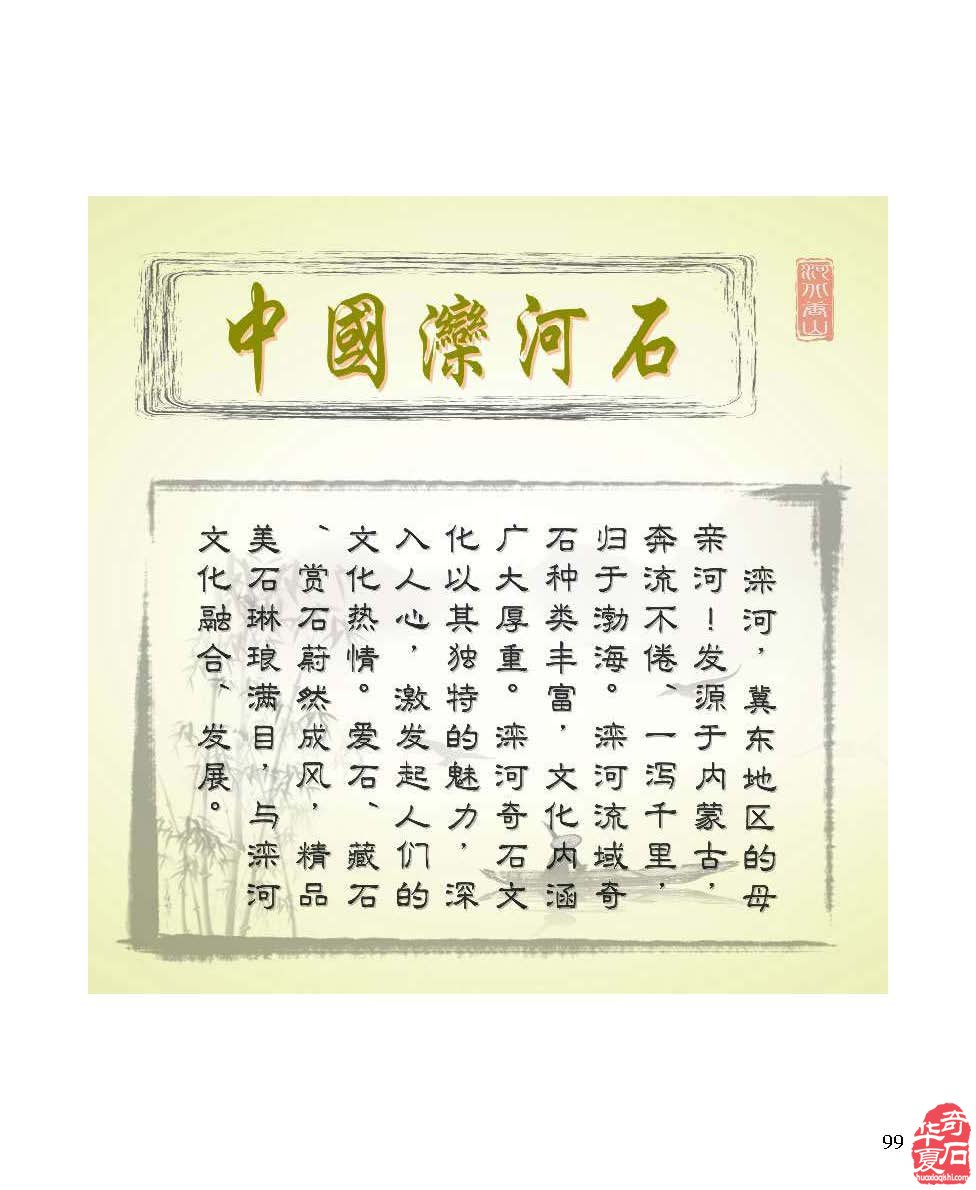 中國灤河石
河北唐山
滦河，冀东地区的母
亲河！发源于内蒙古，
奔流不倦，一泻千里，
归于渤海。滦河流域奇
石种类丰富，文化内涵
广大厚重。滦河奇石文
化以其独特的魅力，深
入人心，激发起人们的
文化热情。爱石、藏石
、赏石蔚然成风，精品
美石琳琅满目，与滦河
文化融合、发展。
99
华夏奇石
huaxiaqishi.com